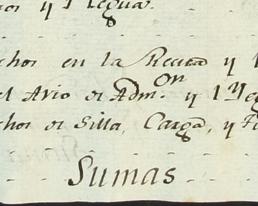 y 1 Yegua.
chos en la Recua y 1
el Avío de Admon y 1 Yeg
chos de Silla, Carga, y
Sumas